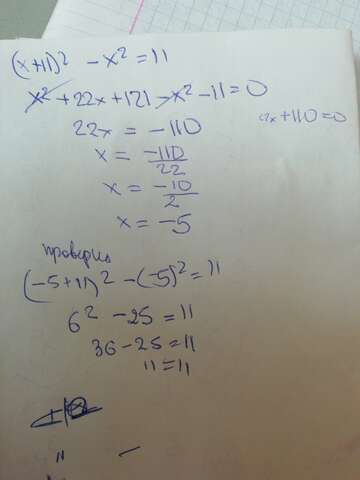 (x+11)² - x² = 11
x² + 22x + 121 - x² - 11 = 0
22x + 110 = 0
22x = -110
x = -110/22
x = -10/2
x = -5
(-5+11)² - (-5)² = 11
6² - 25 = 11
36 - 25 = 11
11 = 11